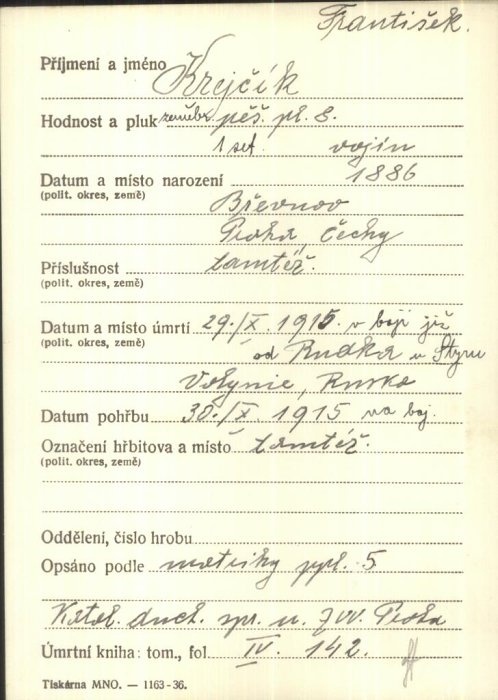 František.
Příjmení a jméno Krejčík
Hodnost a pluk zeměbr. pěš. pl. 8.
1 set. vojín
Datum a místo narození 1886
(polit. okres, země) Břevnov
Praha, Čechy
Příslušnost tamtéž.
(polit. okres, země)
Datum a místo úmrtí 29./X. 1915 v boji již
(polit. okres, země) od Rudka u Styru
Volynie, Rusko
Datum pohřbu 30./X. 1915 na boj.
Označení hřbitova a místo tamtéž.
(polit. okres, země)
Oddělení, číslo hrobu
Opsáno podle matriky ppl. 5
Katol. duch. spr. u ZVV. Praha
Úmrtní kniha: tom., fol. IV. 142.
Tiskárna MNO. — 1163-36.